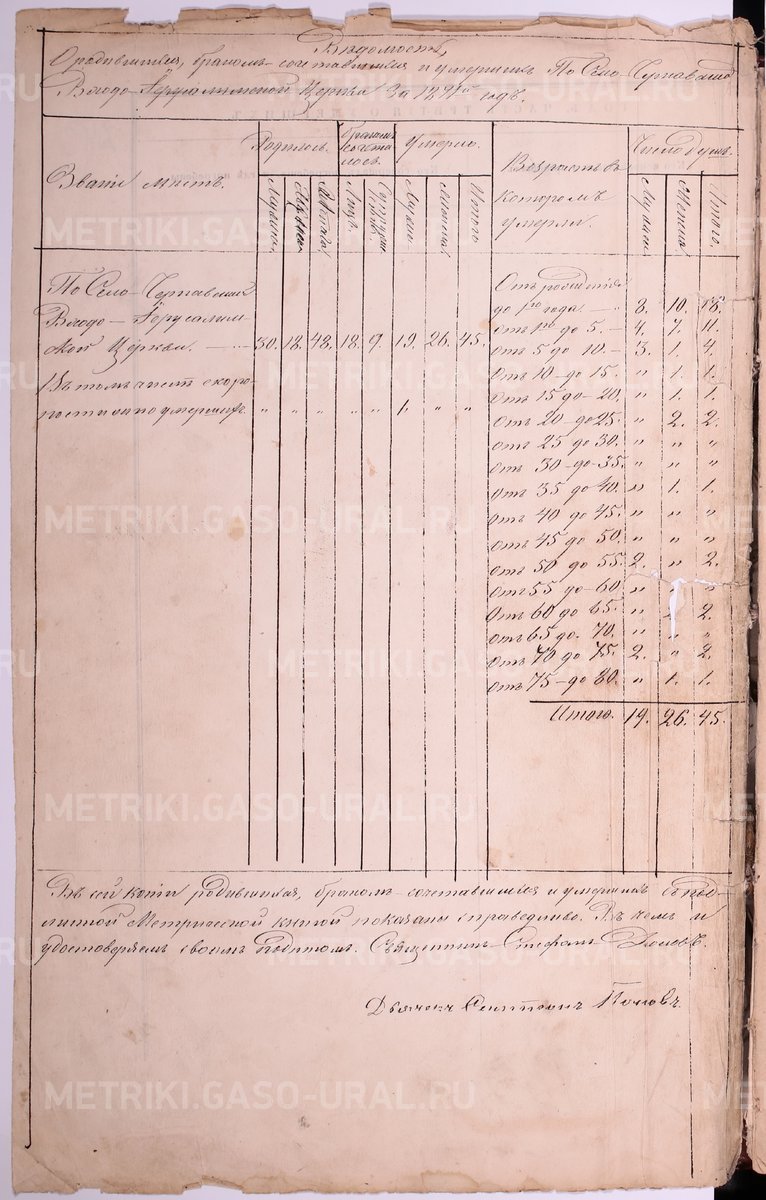 Ведомость,
О родившихся, бракомъ-сочетавшихся и умершихъ По Село-Чернавской
Входо-Іерусалимской Церкви За 18 годъ.
Званіе мѣстъ.
Родилось.
Бракомъ сочеталось.
Умерло.
Возрастъ въ которомъ умерли.
Число душъ.
Мужска. Женска. Обоего. Лицъ. Супружествъ. Мужска. Женска. Итого. Мужска. Женска. Итого.
По Село-Чернавской
Входо-Іерусалим-
ской Церкви. 30. 18. 48. 18. 9. 19. 26. 45.
Въ томъ числѣ скоро-
постижно умершихъ. " " " " " 1. " "
Отъ рожденія
до 1го года. 8. 10. 18.
Отъ 1го до 5. 4. 7. 11.
Отъ 5 до 10. 3. 1. 4.
Отъ 10 до 15. " 1. 1.
Отъ 15 до 20. " 1. 1.
Отъ 20 до 25. " 2. 2.
Отъ 25 до 30. " " "
Отъ 30 до 35. " " "
Отъ 35 до 40. " 1. 1.
Отъ 40 до 45. " " "
Отъ 45 до 50. " " "
Отъ 50 до 55. 2. " 2.
Отъ 55 до 60 " "
Отъ 60 до 65. " 2.
Отъ 65 до 70. " "
Отъ 70 до 75. 2. " 2.
Отъ 75 до 80. " 1. 1.
Итого. 19. 26. 45.
Въ сей копіи родившихся, бракомъ-сочетавшихся и умершихъ съ под-
линной Метрической книгой показаны справедливо. Въ чемъ и
удостоверяемъ своимъ подпсомъ. Священникъ Стефанъ Поповъ.
Дьячекъ Поповъ.
METRIKI.GASO-URAL.RU